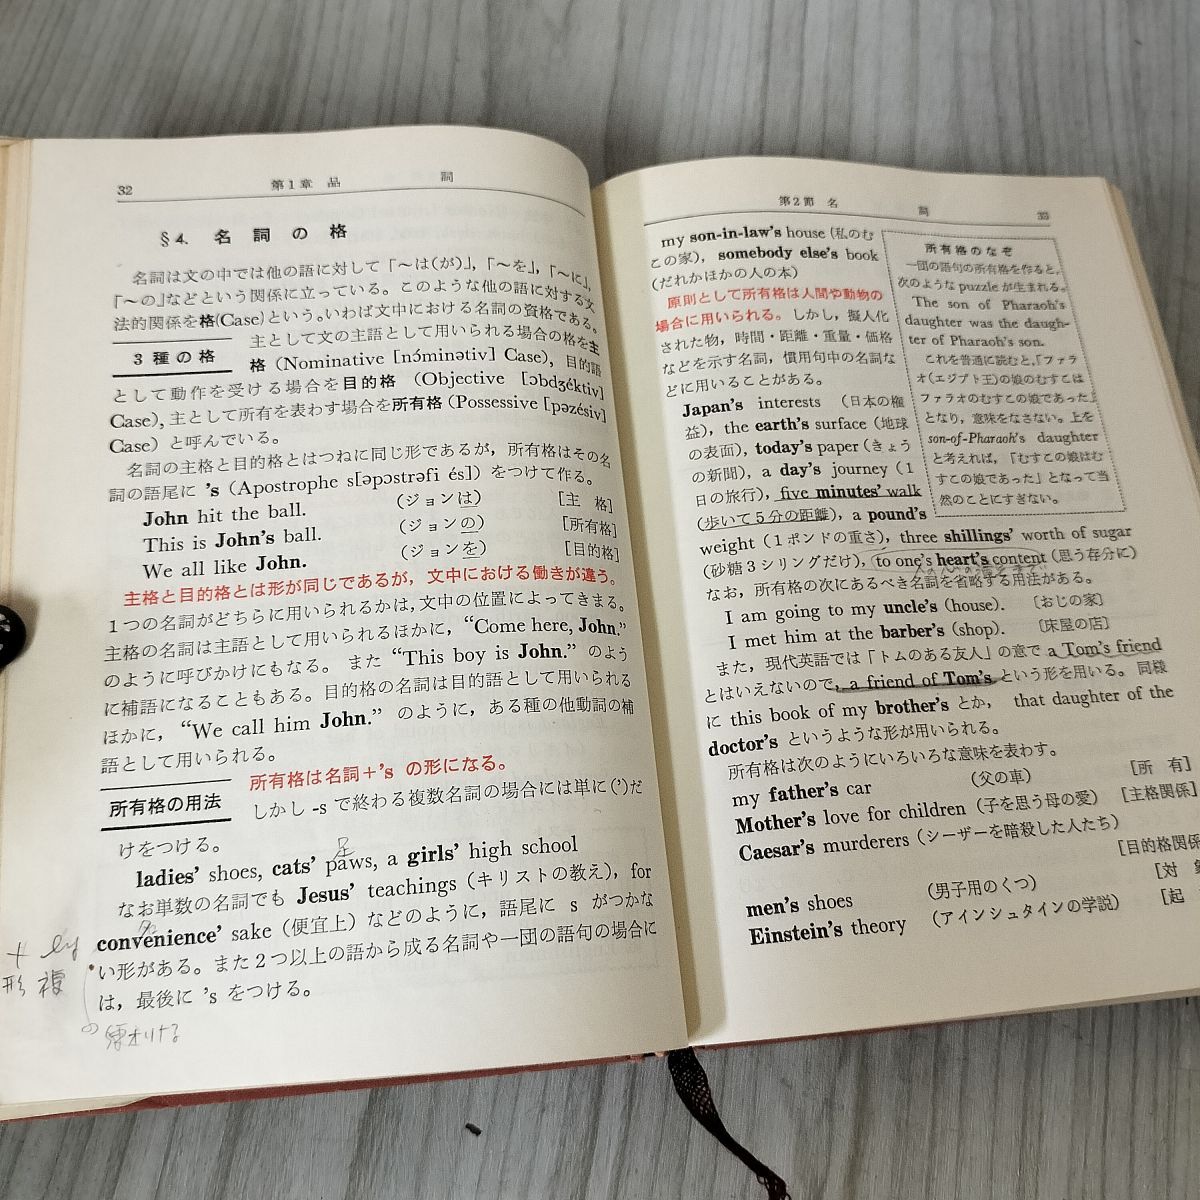 32 第1章 品 詞
§4. 名詞の格
名詞は文の中では他の語に対して「～は(が)」,「～を」,「～に」,
「～の」などという関係に立っている。このような他の語に対する文
法的関係を格(Case)という。いわば文中における名詞の資格である。
3種の格
主として文の主語として用いられる場合の格を主
格 (Nominative [nɔ́minətiv] Case), 目的語
として動作を受ける場合を目的格 (Objective [ɔbdʒéktiv]
Case), 主として所有を表わす場合を所有格 (Possessive [pəzésiv]
Case) と呼んでいる。
名詞の主格と目的格とはつねに同じ形であるが, 所有格はその名
詞の語尾に 's (Apostrophe s[əpɔstrəfi és]) をつけて作る。
John hit the ball. (ジョンは) [主 格]
This is John's ball. (ジョンの) [所有格]
We all like John. (ジョンを) [目的格]
主格と目的格とは形が同じであるが, 文中における働きが違う。
1つの名詞がどちらに用いられるかは, 文中の位置によってきまる。
主格の名詞は主語として用いられるほかに, “Come here, John.”
のように呼びかけにもなる。また “This boy is John.” のよう
に補語になることもある。目的格の名詞は目的語として用いられる
ほかに, “We call him John.” のように, ある種の他動詞の補
語として用いられる。
所有格の用法
所有格は名詞+'s の形になる。
しかし -s で終わる複数名詞の場合には単に(')だ
けをつける。
足
ladies' shoes, cats' paws, a girls' high school
なお単数の名詞でも Jesus' teachings (キリストの教え), for
convenience' sake (便宜上) などのように, 語尾に s がつかな
い形がある。また2つ以上の語から成る名詞や一団の語句の場合に
は, 最後に 's をつける。
+ ly
形 複
第2節 名 詞 33
my son-in-law's house (私のむ
この家), somebody else's book
(だれかほかの人の本)
原則として所有格は人間や動物の
場合に用いられる。しかし, 擬人化
された物, 時間・距離・重量・価格
などを示す名詞, 慣用句中の名詞な
どに用いることがある。
Japan's interests (日本の権
益), the earth's surface (地球
の表面), today's paper (きょう
の新聞), a day's journey (1
日の旅行), five minutes' walk
(歩いて5分の距離), a pound's
weight (1ポンドの重さ), three shillings' worth of sugar
(砂糖3シリングだけ), to one's heart's content (思う存分に)
なお, 所有格の次にあるべき名詞を省略する用法がある。
I am going to my uncle's (house). [おじの家]
I met him at the barber's (shop). [床屋の店]
また, 現代英語では「トムのある友人」の意で a Tom's friend
とはいえないので, a friend of Tom's という形を用いる。同様
に this book of my brother's とか, that daughter of the
doctor's というような形が用いられる。
所有格は次のようにいろいろな意味を表わす。
my father's car (父の車) [所 有]
Mother's love for children (子を思う母の愛) [主格関係]
Caesar's murderers (シーザーを暗殺した人たち)
[目的格関係
men's shoes (男子用のくつ) [対 象
Einstein's theory (アインシュタインの学説) [起
所有格のなぞ
一団の語句の所有格を作ると,
次のような puzzle が生まれる。
The son of Pharaoh's
daughter was the daugh-
ter of Pharaoh's son.
これを普通に読むと,「ファラ
オ(エジプト王)の娘のむすこは
ファラオのむすこの娘であった」
となり, 意味をなさない。上を
son-of-Pharaoh's daughter
と考えれば,「むすこの娘はむ
すこの娘であった」となって当
然のことにすぎない。